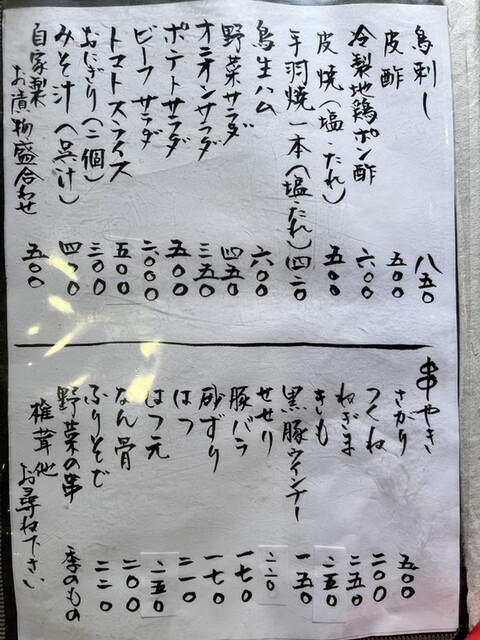 鳥刺し 八五〇
皮酢 五〇〇
冷製地鶏ポン酢 六〇〇
皮焼(塩・たれ) 五〇〇
手羽焼一本(塩・たれ) 四二〇
鳥生ハム 六〇〇
野菜サラダ 四五〇
オニオンサラダ 三五〇
ポテトサラダ 五〇〇
ビーフサラダ 二〇〇〇
トマトスライス 五〇〇
おにぎり(二個) 三〇〇
みそ汁(呉汁)
自家製お漬物盛合わせ 五〇〇
串やき
さがり 五〇〇
つくね 二〇〇
ねぎま 二五〇
きも 二五〇
黒豚ウインナー 一五〇
せせり 二二〇
豚バラ 一七〇
砂ずり 一七〇
はつ 二一〇
はつ元 二五〇
なん骨 二〇〇
ふりそで 二二〇
野菜の串 季のもの
椎茸他お尋ね下さい